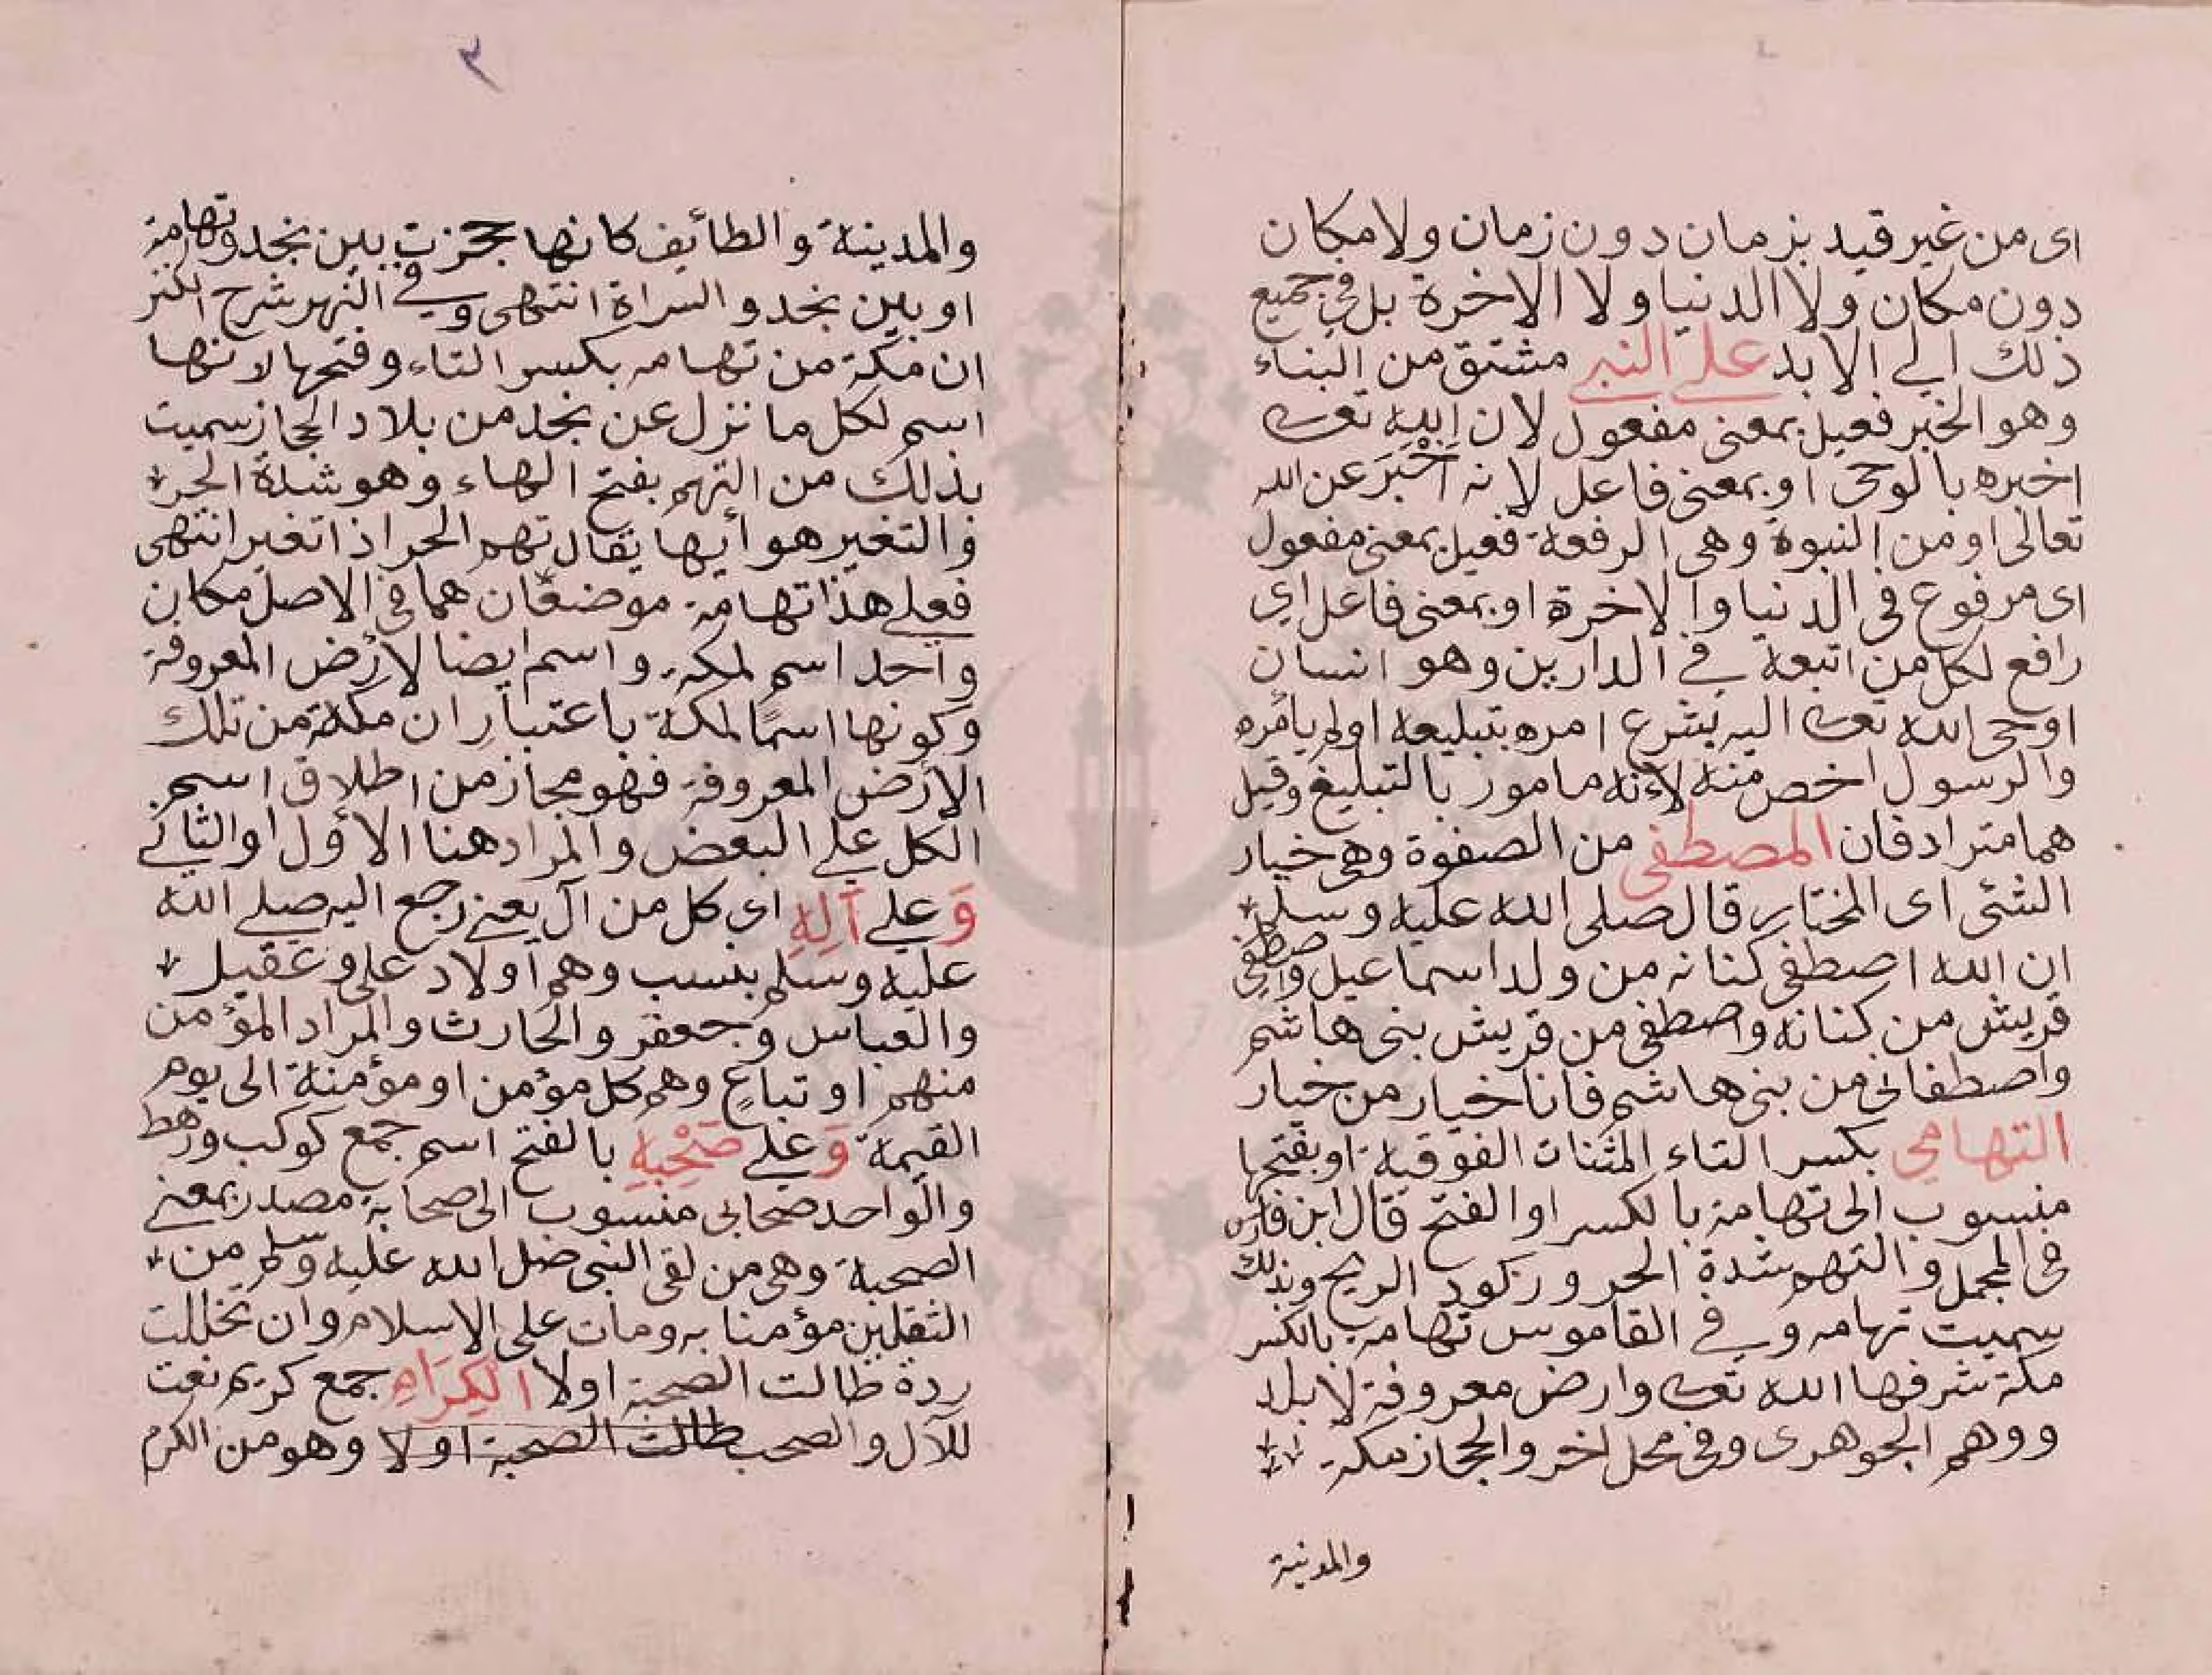 اى من غير قيد بزمان دون زمان ولا مكان
دون مكان ولا الدنيا ولا الاخرة بل في جميع
ذلك الي الابد علي النبي مشتق من النباء
وهو الخبر فعيل بمعنى مفعول لان الله تعالى
اخبره بالوحى او بمعنى فاعل لانه اخبر عن الله
تعالى او من النبوة وهى الرفعة فعيل بمعنى مفعول
اى مرفوع فى الدنيا والاخرة او بمعنى فاعل اي
رافع لكل من اتبعه في الدارين وهو انسان
اوحى الله تعالى اليه بشرع امره بتبليغه اولم يأمره
والرسول اخص منه لأنه مامور بالتبليغ وقيل
هما مترادفان المصطفى من الصفوة وهى خيار
الشئى اى المختار قال صلى الله عليه وسلم
ان الله اصطفى كنانه من ولد اسماعيل واصطفى
قريش من كنانه واصطفى من قريش بنى هاشم
واصطفانى من بنى هاشم فانا خيار من خيار
التهامي بكسر التاء المثنات الفوقية او بفتحها
منسوب الى تهامة بالكسر او الفتح قال ابن فارس
فى المجمل والتهم شدة الحر وركود الريح وبذلك
سميت تهامه وفي القاموس تهامة بالكسر
مكة شرفها الله تعالى وارض معروفة لا بلد
ووهم الجوهرى وفى محل اخر والحجاز مكة
والمدنية
٣
والمدينة والطائف كانها حجزت بين نجد وتهامة
او بين نجد والسراة انتهى وفي النهر شرح الكنز
ان مكة من تهامه بكسر التاء وفتحها لانها
اسم لكل ما نزل عن نجد من بلاد الحجاز سميت
بذلك من التهم بفتح الهاء وهو شدة الحر
والتغير هو أيها يقال تهم الحر اذا تغير انتهى
فعلي هذا تهامة موضعان هما فى الاصل مكان
واحد اسم لمكة واسم ايضا لأرض المعروفة
وكونها اسمًا لمكة باعتبار ان مكة من تلك
الأرض المعروفة فهو مجاز من اطلاق اسم
الكل علي البعض والمراد هنا الأول او الثاني
وَعلي آلِهِ اى كل من آل يعني رجع اليه صلي الله
عليه وسلم بنسب وهم أولاد على وعقيل
والعباس وجعفر والحارث والمراد المؤمن
منهم او تباعٍ وهم كل مؤمن او مؤمنة الى يوم
القيمة وَعلي صَحْبِهِ بالفتح اسم جمع كوكب ورهط
والواحد صحابى منسوب الى صحابة مصدر بمعني
الصحبة وهى من لقى النبى صلى الله عليه وسلم من
الثقلين مؤمنا به ومات على الاسلام وان تخللت
ردة طالت الصحبة اولا الكِرَام جمع كريم نعت
للآل والصحب طالت الصحبة اولا وهو من الكرم